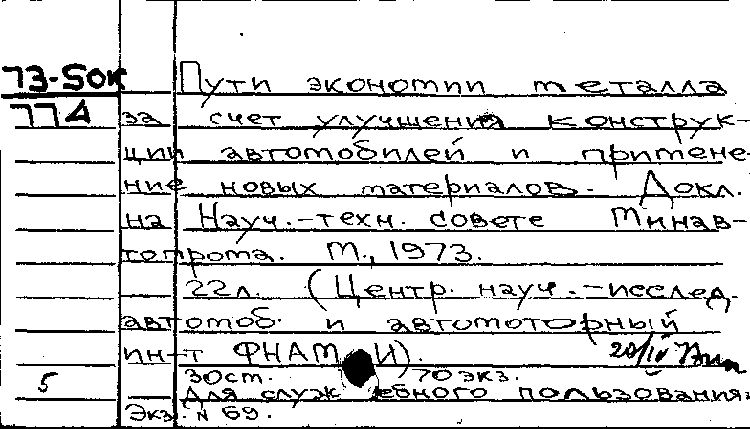 73-50к Пути экономии металла
77А за счет улучшения конструк-
ции автомобилей и примене-
ние новых материалов. Докл.
на Науч.-техн. совете Минав-
топрома. М., 1973.
22л. (Центр. науч.-исслед.
автомоб. и автомоторный
ин-т ФНАМИ).
30ст. 70экз.
5 Для служебного пользования.
Экз. N 69.